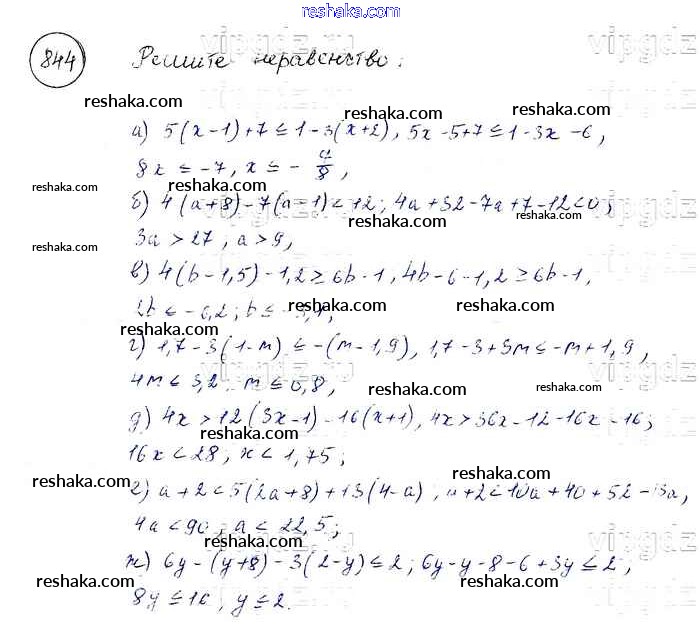 reshaka.com
844 Решите неравенство:
vipgdz.ru
reshaka.com
reshaka.com
а) 5(x-1)+7 ≤ 1-3(x+2), 5x-5+7 ≤ 1-3x-6,
reshaka.com
8x ≤ -7, x ≤ - /8,
reshaka.com reshaka.com reshaka.com
б) 4(a+8)-7(a-1)<12; 4a+32-7a+7-12<0;
3a>27, a>9,
reshaka.com
в) 4(b-1,5)-1,2 ≥ 6b-1, 4b-6-1,2 ≥ 6b-1,
2b ≤ -6,2; b ≤ -3,1;
reshaka.com reshaka.com
reshaka.com
г) 1,7-3(1-m) ≤ -(m-1,9), 1,7-3+3m ≤ -m+1,9,
4m ≤ 3,2 m ≤ 0,8,
reshaka.com reshaka.com
д) 4x>12(3x-1)-16(x+1), 4x>36x-12-16x-16;
reshaka.com
16x<28, x<1,75;
reshaka.com reshaka.com
е) a+2<5(2a+8)+13(4-a), a+2<10a+40+52-13a,
4a<90, a<22,5;
reshaka.com reshaka.com
ж) 6y-(y+8)-3(2-y) ≤ 2; 6y-y-8-6+3y ≤ 2,
reshaka.com reshaka.com
8y ≤ 16, y ≤ 2.